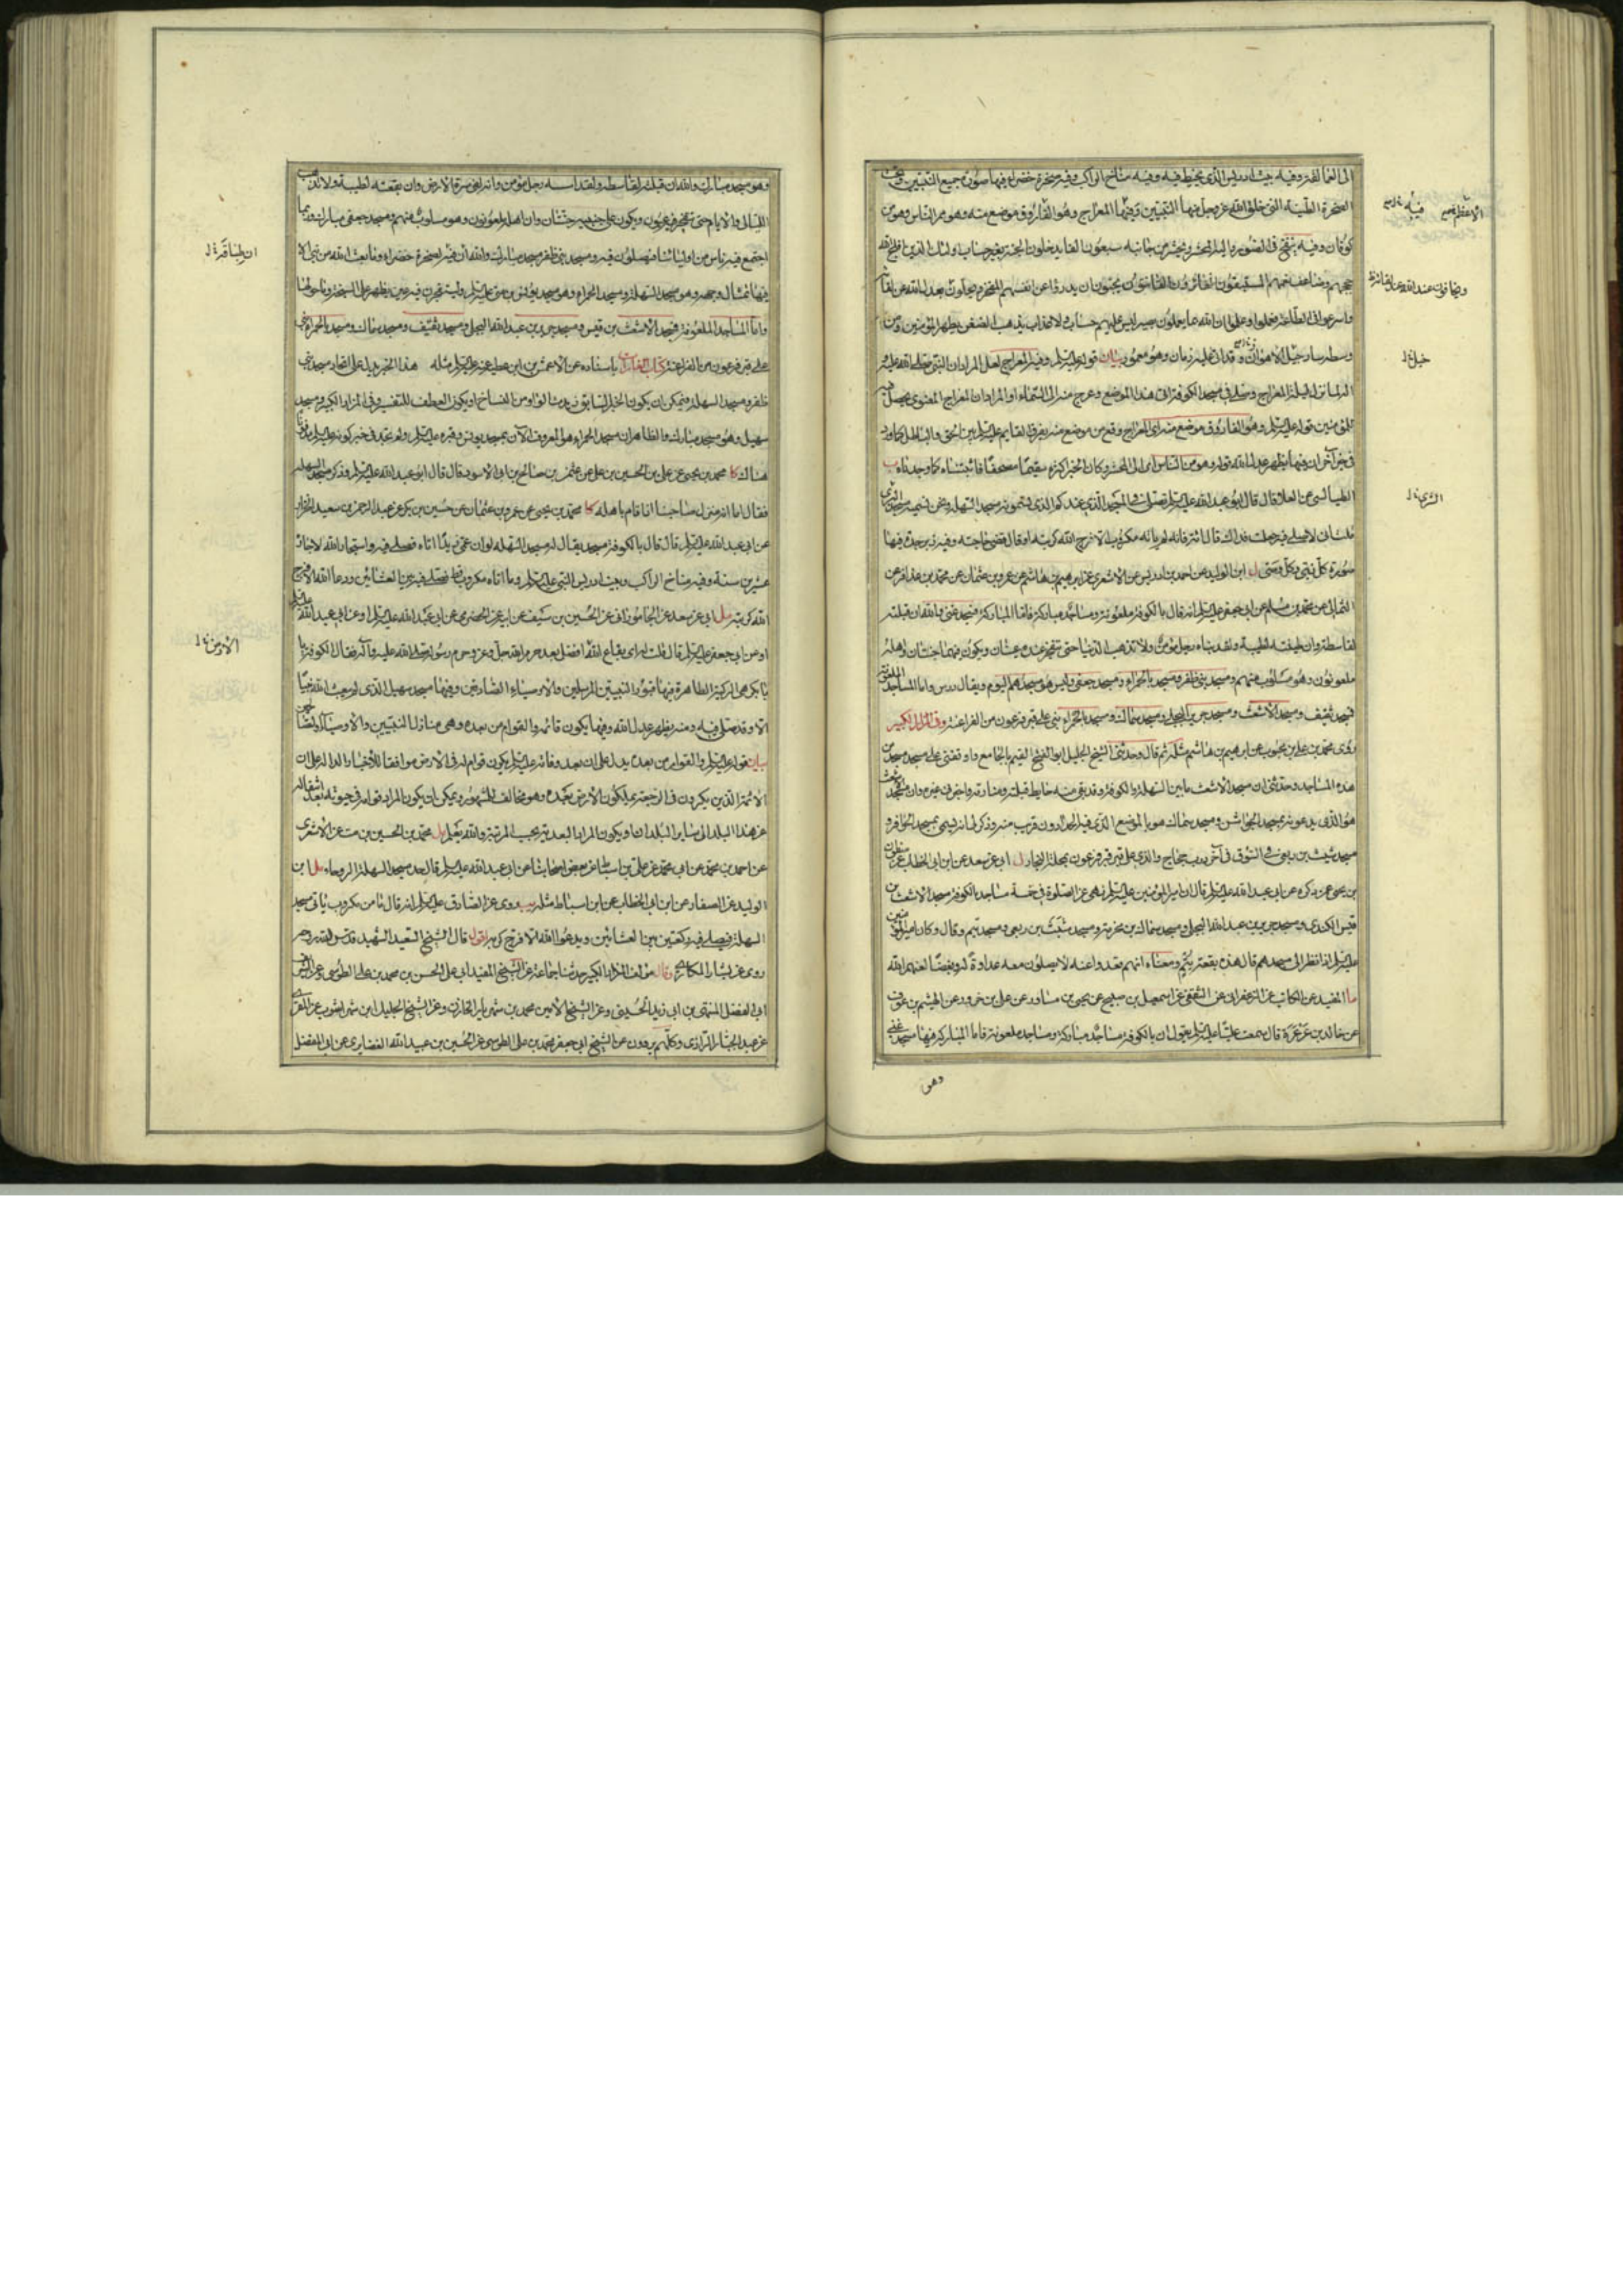 الى العمالقة وفيه بيت ادريس الذي يخيط فيه وفيه مناخ الراكب وفيه صخرة خضراء فيها صورة جميع النبيين وتحت
الصخرة الطينة التي خلق الله عز وجل منها النبيين وفيها المعراج وهو الفاروق موضع منه وهو ممر الناس وهو من
كوفان وفيه ينفخ في الصور واليه المحشر ويحشر من جانبه سبعون الفا يدخلون الجنة بغير حساب اولئك الذين افلج الله
حججهم وضاعف نعمهم المستبقون الفائزون القانتون يحبون ان يدرؤا عن انفسهم المفخر ويجلون بعدل الله عن لقائه
واسرعوا في الطاعة فعملوا وعلموا ان الله بما يعملون بصير ليس عليهم حساب ولا عذاب يذهب الضغن يطهر المؤمنين ومن
وسطه سار جبل الاهواز وقد اتى عليه زمان وهو معمور بيان قوله عليه السلام وفيه المعراج لعل المراد ان النبي صلى الله عليه
المؤمنين قوله عليه السلام وهو الفاروق موضع منه اي المعراج وقع من موضع منه يفرق القايم عليه السلام بين الحق والباطل كما ورد
في خبر آخر ان فيها يظهر عدل الله قوله وهو ممر الناس اي الى المحشر وكان الخبر اكثره سقيما مصحفا فاثبتناه كما وجدناه ب
الطيالسي عن العلا قال قال ابو عبد الله عليه السلام تصلي في المسجد الذي عندكم الذي تسمونه مسجد السهلة ونحن نسميه مسجد الشرى
قلت اني لاصلي فيه جعلت فداك قال ائته فانه لم يأته مكروب الا فرج الله كربته او قال قضى حاجته وفيه زبرجدة فيها
صورة كل نبي وكل وصي ل ابن الوليد عن احمد بن ادريس عن الاشعري عن ابرهيم بن هاشم عن عمرو بن عثمان عن محمد بن عذافر عن
الثمالي عن محمد بن مسلم عن ابي جعفر عليه السلام انه قال بالكوفة مساجد ملعونة ومساجد مباركة فاما المباركة فمسجد غني والله ان قبلته
لقاسطة وان طينته لطيبة ولقد بناه رجل مؤمن ولا تذهب الدنيا حتى تنفجر عنده عينان ويكون فيهما جنتان واهله
ملعونون وهو مسلوب منهم ومسجد بني ظفر ومسجد بالحمراء ومسجد جعفي وليس هو مسجدهم اليوم ويقال درس واما المساجد الملعونة
فمسجد ثقيف ومسجد الاشعث ومسجد جرير البجلي ومسجد سماك ومسجد بالحمراء بني على قبر فرعون من الفراعنة وفي المزار الكبير
روى محمد بن علي بن محبوب عن ابرهيم بن هاشم مثله ثم قال وحدثني الشيخ الجليل ابو الفتح القيم بالجامع واوقفني على مسجد مسجد من
هذه المساجد وحدثني ان مسجد الاشعث ما بين السهلة والكوفة وقد بقي منه حايط قبلته ومنارته واخبرني غيره ان مسجد الاشعث
هو الذي يدعونه بمسجد الجواشن ومسجد سماك هو بالموضع الذي فيه الحدادون قريب منه وذكر لي انه يسمى بمسجد الحوافر و
مسجد شبث بن ربعي في السوق في آخر درب حجاج والذي على قبر فرعون بمحلة النجار ل ابي عن سعد عن ابن ابي الخطاب عن صفوان
بن يحيى عمن ذكره عن ابي عبد الله عليه السلام قال ان امير المؤمنين عليه السلام نهى عن الصلوة في خمسة مساجد بالكوفة مسجد الاشعث بن
قيس الكندي ومسجد جرير بن عبد الله البجلي ومسجد سماك بن مخرمة ومسجد شبث بن ربعي ومسجد تيم وقال وكان امير المؤمنين
عليه السلام اذا نظر الى مسجدهم قال هذه بقعة تيم ومعناه انهم قعدوا عنه لا يصلون معه عداوة له وبغضا لعنهم الله
ما المفيد عن الكاتب عن الزعفراني عن الثقفي عن اسمعيل بن صبيح عن يحيى بن مساور عن علي بن حزور عن الهيثم بن عوف
عن خالد بن عرعرة قال سمعت عليا عليه السلام يقول ان بالكوفة مساجد مباركة ومساجد ملعونة فاما المباركة فمنها مسجد غني
وهو
وهو مسجد مبارك والله ان قبلته لقاسطة ولقد اسسه رجل مؤمن وانه لفي سرة الارض وان بقعته لطيبة ولا تذهب
الليالي والايام حتى تنفجر فيه عيون ويكون على جنبيه جنتان وان اهله ملعونون وهو مسلوب منهم ومسجد جعفي مبارك وربما
اجتمع فيه ناس من اوليائنا فيصلون فيه ومسجد بني ظفر مسجد مبارك والله ان فيه لصخرة خضراء وما بعث الله من نبي الا
فيها تمثال وجهه وهو مسجد السهلة ومسجد الحمراء وهو مسجد يونس بن متى عليه السلام
واما المساجد الملعونة فمسجد الاشعث بن قيس ومسجد جرير بن عبد الله البجلي ومسجد ثقيف ومسجد سماك ومسجد بالحمراء بني
على قبر فرعون من الفراعنة كتاب الغارات باسناده عن الاعمش عن ابن عطية عنه عليه السلام مثله هذا الخبر يدل على اتحاد مسجد بني
ظفر ومسجد السهلة فيمكن ان يكون الخبر السابق زيدت الواو من النساخ او يكون العطف للتفسير وفي المزار الكبير ومسجد
سهيل وهو مسجد مبارك والظاهر ان مسجد الحمراء هو المعروف الآن بمسجد يونس وقبره عليه السلام ولم نجد في خبر كونه عليه السلام مدفونا
هناك كا محمد بن يحيى عن علي بن الحسين بن علي عن عثمن عن صالح بن ابي الاسود قال قال ابو عبد الله عليه السلام وذكر مسجد السهلة
فقال اما انه منزل صاحبنا اذا قام باهله كا محمد بن يحيى عن عمرو بن عثمان عن حسين بن بكر عن عبد الرحمن بن سعيد الخزاز
عن ابي عبد الله عليه السلام قال قال بالكوفة مسجد يقال له مسجد السهلة لو ان عمي زيدا اتاه فصلى فيه واستجار الله لاجاره
عشرين سنة وفيه مناخ الراكب وبيت ادريس النبي عليه السلام وما اتاه مكروب قط فصلى فيه بين العشائين ودعا الله الا فرج
الله كربته مل ابي عن سعد عن الجاموراني عن الحسين بن سيف عن ابيه عن الحضرمي عن ابي عبد الله عليه السلام
او عن ابي جعفر عليه السلام قال قلت له اي بقاع الله افضل بعد حرم الله جل وعز وحرم رسوله صلى الله عليه وآله فقال الكوفة يا
با بكر هي الزكية الطاهرة فيها قبور النبيين المرسلين والاوصياء الصادقين وفيها مسجد سهيل الذي لم يبعث الله نبيا
الا وقد صلى فيه ومنه يظهر عدل الله وفيها يكون قائمه والقوام من بعده وهي منازل النبيين والاوصياء
بيان قوله عليه السلام والقوام من بعده يدل على ان بعد وفاته عليه السلام يكون قوام له في الارض موافقا للأخبار الدالة على ان
الائمة الذين يكرون في الرجعة يملكون الارض بعده وهو مخالف للمشهور ويمكن ان يكون المراد قوامه في حيوته
عن هذا البلد الى ساير البلدان او يكون المراد البعدية بحسب المرتبة والله يعلم مل محمد بن الحسين بن مت عن الاشعري
عن احمد بن محمد عن ابي محمد عن علي بن اسباط عن بعض اصحابنا عن ابي عبد الله عليه السلام قال حد مسجد السهلة الروحاء مل ابن
الوليد عن الصفار عن ابن ابي الخطاب عن ابن اسباط مثله يب روى عن الصادق عليه السلام انه قال ما من مكروب يأتي مسجد
السهلة فيصلي فيه ركعتين بين العشائين ويدعو الله الا فرج كربه اقول قال الشيخ السعيد الشهيد قدس الله روحه
روى عن بشار المكاري وقال مؤلف المزار الكبير حدثنا جماعة عن الشيخ المفيد ابي علي الحسن بن محمد بن علي الطوسي وعن الشريف
ابي الفضل المنتهى بن ابي زيد الحسيني وعن الشيخ الامين محمد بن شهريار الخازن وعن الشيخ الجليل ابن شهر اشوب عن المقري
عن عبد الجبار الرازي وكلهم يروون عن الشيخ ابي جعفر محمد بن علي الطوسي عن الحسين بن عبيد الله الغضايري عن ابي المفضل